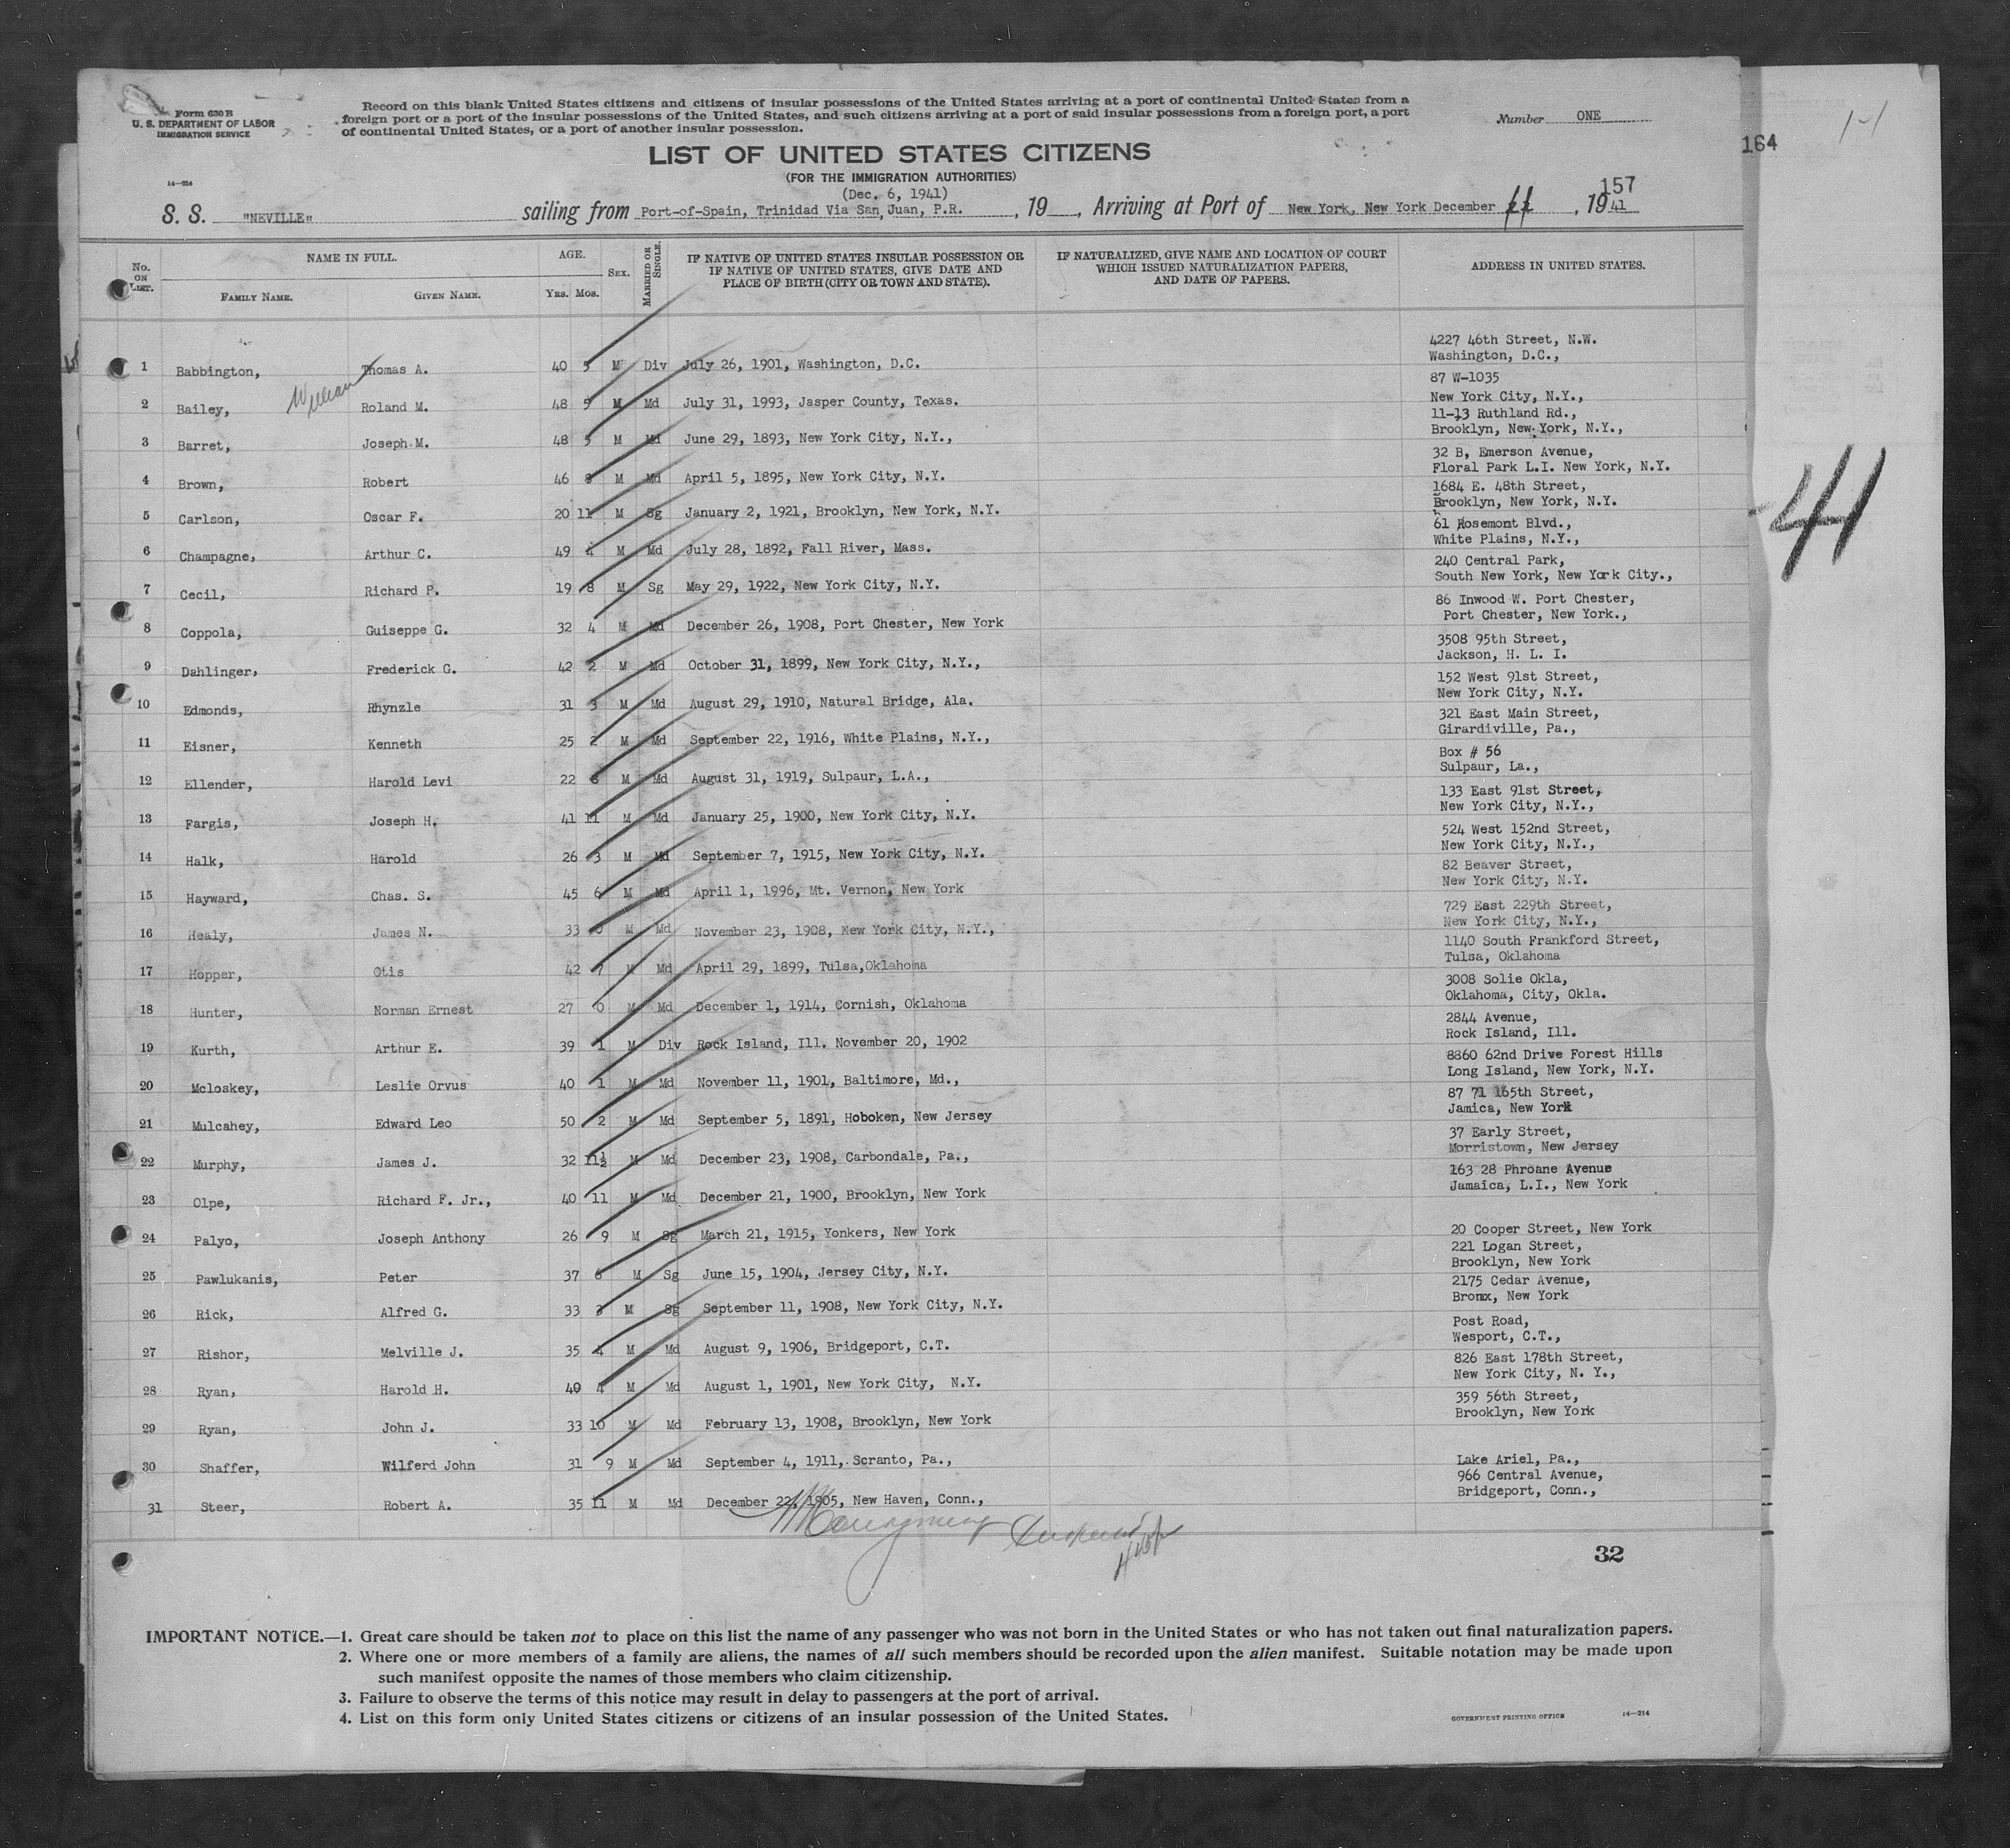 Form 630 B
U. S. DEPARTMENT OF LABOR
IMMIGRATION SERVICE
Record on this blank United States citizens and citizens of insular possessions of the United States arriving at a port of continental United States from a
foreign port or a port of the insular possessions of the United States, and such citizens arriving at a port of said insular possessions from a foreign port, a port
of continental United States, or a port of another insular possession.
Number ONE
164
LIST OF UNITED STATES CITIZENS
(FOR THE IMMIGRATION AUTHORITIES)
14—214
(Dec. 6, 1941)
157
S. S. "NEVILLE" sailing from Port-of-Spain, Trinidad Via San Juan, P.R. , 19 , Arriving at Port of New York, New York December 11 , 19 41
No. ON LIST.
NAME IN FULL.
FAMILY NAME. GIVEN NAME.
AGE.
YRS. MOS.
SEX.
MARRIED OR SINGLE.
IF NATIVE OF UNITED STATES INSULAR POSSESSION OR
IF NATIVE OF UNITED STATES, GIVE DATE AND
PLACE OF BIRTH (CITY OR TOWN AND STATE).
IF NATURALIZED, GIVE NAME AND LOCATION OF COURT
WHICH ISSUED NATURALIZATION PAPERS,
AND DATE OF PAPERS.
ADDRESS IN UNITED STATES.
4227 46th Street, N.W.
1 Babbington, Thomas A. 40 5 M Div July 26, 1901, Washington, D.C. Washington, D.C.,
William
87 W-1035
2 Bailey, Roland M. 48 5 M Md July 31, 1993, Jasper County, Texas. New York City, N.Y.,
11-13 Ruthland Rd.,
3 Barret, Joseph M. 48 5 M Md June 29, 1893, New York City, N.Y., Brooklyn, New York, N.Y.,
32 B, Emerson Avenue,
4 Brown, Robert 46 8 M Md April 5, 1895, New York City, N.Y. Floral Park L.I. New York, N.Y.
1684 E. 48th Street,
5 Carlson, Oscar F. 20 11 M Sg January 2, 1921, Brooklyn, New York, N.Y. Brooklyn, New York, N.Y.
61 Rosemont Blvd.,
6 Champagne, Arthur C. 49 4 M Md July 28, 1892, Fall River, Mass. White Plains, N.Y.,
240 Central Park,
7 Cecil, Richard P. 19 8 M Sg May 29, 1922, New York City, N.Y. South New York, New York City.,
86 Inwood W. Port Chester,
8 Coppola, Guiseppe G. 32 4 M Md December 26, 1908, Port Chester, New York Port Chester, New York.,
3508 95th Street,
9 Dahlinger, Frederick G. 42 2 M Md October 31, 1899, New York City, N.Y., Jackson, H. L. I.
152 West 91st Street,
10 Edmonds, Rhynzle 31 3 M Md August 29, 1910, Natural Bridge, Ala. New York City, N.Y.
321 East Main Street,
11 Eisner, Kenneth 25 2 M Md September 22, 1916, White Plains, N.Y., Girardiville, Pa.,
Box # 56
12 Ellender, Harold Levi 22 8 M Md August 31, 1919, Sulpaur, L.A., Sulpaur, La.,
133 East 91st Street,
13 Fargis, Joseph H. 41 11 M Md January 25, 1900, New York City, N.Y. New York City, N.Y.,
524 West 152nd Street,
14 Halk, Harold 26 3 M Md September 7, 1915, New York City, N.Y. New York City, N.Y.,
82 Beaver Street,
15 Hayward, Chas. S. 45 6 M Md April 1, 1996, Mt. Vernon, New York New York City, N.Y.
729 East 229th Street,
16 Healy, James N. 33 0 M Md November 23, 1908, New York City, N.Y., New York City, N.Y.,
1140 South Frankford Street,
17 Hopper, Otis 42 7 M Md April 29, 1899, Tulsa,Oklahoma Tulsa, Oklahoma
3008 Solie Okla,
18 Hunter, Norman Ernest 27 0 M Md December 1, 1914, Cornish, Oklahoma Oklahoma, City, Okla.
2844 Avenue,
19 Kurth, Arthur E. 39 1 M Div Rock Island, Ill. November 20, 1902 Rock Island, Ill.
8860 62nd Drive Forest Hills
20 Mcloskey, Leslie Orvus 40 1 M Md November 11, 1901, Baltimore, Md., Long Island, New York, N.Y.
87 71 165th Street,
21 Mulcahey, Edward Leo 50 2 M Md September 5, 1891, Hoboken, New Jersey Jamica, New York
37 Early Street,
22 Murphy, James J. 32 11½ M Md December 23, 1908, Carbondale, Pa., Morristown, New Jersey
163 28 Phroane Avenue
23 Olpe, Richard F. Jr., 40 11 M Md December 21, 1900, Brooklyn, New York Jamaica, L.I., New York
24 Palyo, Joseph Anthony 26 9 M Sg March 21, 1915, Yonkers, New York 20 Cooper Street, New York
221 Logan Street,
25 Pawlukanis, Peter 37 6 M Sg June 15, 1904, Jersey City, N.Y. Brooklyn, New York
2175 Cedar Avenue,
26 Rick, Alfred G. 33 3 M Sg September 11, 1908, New York City, N.Y. Bronx, New York
Post Road,
27 Rishor, Melville J. 35 4 M Md August 9, 1906, Bridgeport, C.T. Wesport, C.T.,
826 East 178th Street,
28 Ryan, Harold H. 40 4 M Md August 1, 1901, New York City, N.Y. New York City, N. Y.,
359 56th Street,
29 Ryan, John J. 33 10 M Md February 13, 1908, Brooklyn, New York Brooklyn, New York
30 Shaffer, Wilferd John 31 9 M Md September 4, 1911, Scranto, Pa., Lake Ariel, Pa.,
966 Central Avenue,
31 Steer, Robert A. 35 11 M Md December 22, 1905, New Haven, Conn., Bridgeport, Conn.,
41
32
IMPORTANT NOTICE.—1. Great care should be taken not to place on this list the name of any passenger who was not born in the United States or who has not taken out final naturalization papers.
2. Where one or more members of a family are aliens, the names of all such members should be recorded upon the alien manifest. Suitable notation may be made upon
such manifest opposite the names of those members who claim citizenship.
3. Failure to observe the terms of this notice may result in delay to passengers at the port of arrival.
4. List on this form only United States citizens or citizens of an insular possession of the United States.
GOVERNMENT PRINTING OFFICE 14—214